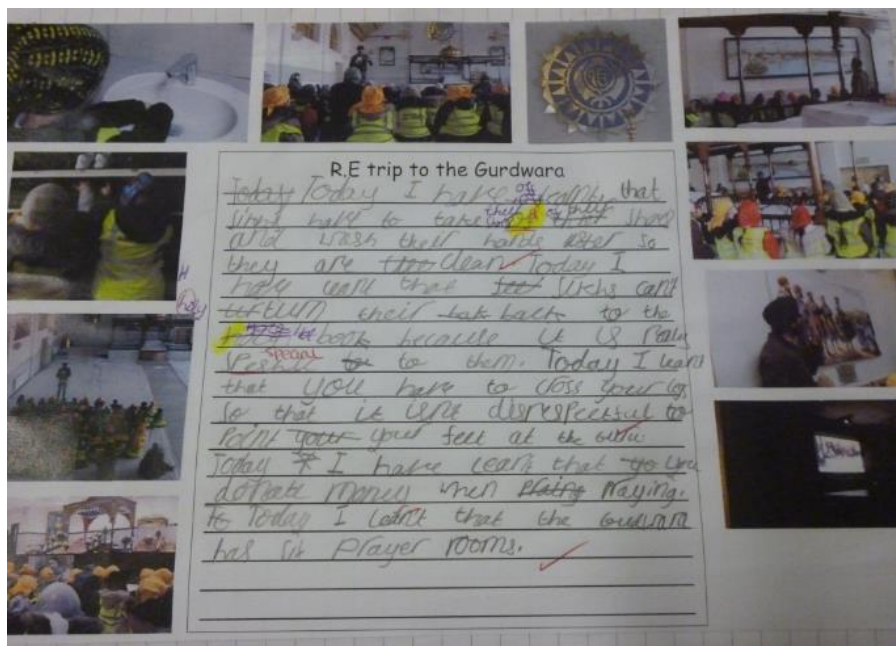 R.E trip to the Gurdwara
Today Today I have learnt that
Sikhs have to take off their shoes
and wash their hands after so
they are clean Today I
have learnt that Sikhs can't
turn their back to the
book because it is really
special to them. Today I learnt
that you have to cross your legs
so that it isnt disrespectful to
Point your feet at the Guru
Today I have learn that you
donate money when Praying.
Today I learnt that the Gurdwara
has six Prayer rooms.